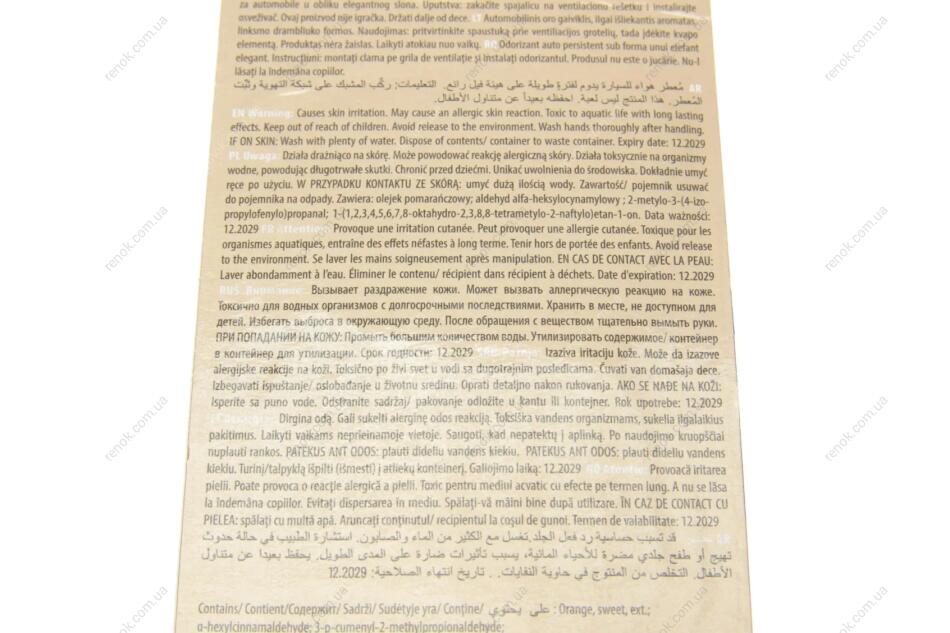 za automobile u obliku elegantnog slona. Uputstva: zakačite spajalicu na ventilacionu rešetku i instalirajte
osveživač. Ovaj proizvod nije igračka. Držati dalje od dece. LT Automobilinis oro gaiviklis, ilgai išliekantis aromatas,
linksmo drambliuko formos. Naudojimas: pritvirtinkite spaustuką prie ventiliacijos grotelių, tada įdėkite kvapo
elementą. Produktas nėra žaislas. Laikyti atokiau nuo vaikų. RO Odorizant auto persistent sub forma unui elefant
elegant. Instrucțiuni: montați clama pe grila de ventilație și instalați odorizantul. Produsul nu este o jucărie. Nu-l
lăsați la îndemâna copiilor.
AR مُعطر هواء للسيارة يدوم لفترةٍ طويلة على هيئة فيل رائع. التعليمات: ركّب المشبك على شبكة التهوية وثبّت
المُعطر. هذا المنتج ليس لعبة. احفظه بعيداً عن متناول الأطفال.
EN Warning: Causes skin irritation. May cause an allergic skin reaction. Toxic to aquatic life with long lasting
effects. Keep out of reach of children. Avoid release to the environment. Wash hands thoroughly after handling.
IF ON SKIN: Wash with plenty of water. Dispose of contents/ container to waste container. Expiry date: 12.2029
PL Uwaga: Działa drażniąco na skórę. Może powodować reakcję alergiczną skóry. Działa toksycznie na organizmy
wodne, powodując długotrwałe skutki. Chronić przed dziećmi. Unikać uwolnienia do środowiska. Dokładnie umyć
ręce po użyciu. W PRZYPADKU KONTAKTU ZE SKÓRĄ: umyć dużą ilością wody. Zawartość/ pojemnik usuwać
do pojemnika na odpady. Zawiera: olejek pomarańczowy; aldehyd alfa-heksylocynamylowy ; 2-metylo-3-(4-izo-
propylofenylo)propanal; 1-(1,2,3,4,5,6,7,8-oktahydro-2,3,8,8-tetrametylo-2-naftylo)etan-1-on. Data ważności:
12.2029 FR Attention: Provoque une irritation cutanée. Peut provoquer une allergie cutanée. Toxique pour les
organismes aquatiques, entraîne des effets néfastes à long terme. Tenir hors de portée des enfants. Avoid release
to the environment. Se laver les mains soigneusement après manipulation. EN CAS DE CONTACT AVEC LA PEAU:
Laver abondamment à l'eau. Éliminer le contenu/ récipient dans récipient à déchets. Date d'expiration: 12.2029
RUS Внимание: Вызывает раздражение кожи. Может вызвать аллергическую реакцию на коже.
Токсично для водных организмов с долгосрочными последствиями. Хранить в месте, не доступном для
детей. Избегать выброса в окружающую среду. После обращения с веществом тщательно вымыть руки.
ПРИ ПОПАДАНИИ НА КОЖУ: Промыть большим количеством воды. Утилизировать содержимое/ контейнер
в контейнер для утилизации. Срок годности: 12.2029 Izaziva iritaciju kože. Može da izazove
alergijske reakcije na koži. Toksično po živi svet u vodi sa dugotrajnim posledicama. Čuvati van domašaja dece.
Izbegavati ispuštanje/ oslobađanje u životnu sredinu. Oprati detaljno nakon rukovanja. AKO SE NAĐE NA KOŽI:
Isperite sa puno vode. Odstranite sadržaj/ pakovanje odložite u kantu ili kontejner. Rok upotrebe: 12.2029
Dirgina odą. Gali sukelti alerginę odos reakciją. Toksiška vandens organizmams, sukelia ilgalaikius
pakitimus. Laikyti vaikams neprieinamoje vietoje. Saugoti, kad nepatektų į aplinką. Po naudojimo kruopščiai
nuplauti rankos. PATEKUS ANT ODOS: plauti dideliu vandens kiekiu. PATEKUS ANT ODOS: plauti dideliu vandens
kiekiu. Turinį/talpyklą išpilti (išmesti) į atliekų konteinerį. Galiojimo laiką: 12.2029 RO Atenție: Provoacă iritarea
pielii. Poate provoca o reacție alergică a pielii. Toxic pentru mediul acvatic cu efecte pe termen lung. A nu se lăsa
la îndemâna copiilor. Evitați dispersarea în mediu. Spălați-vă mâini bine după utilizare. ÎN CAZ DE CONTACT CU
PIELEA: spălați cu multă apă. Aruncați conținutul/ recipientul la coșul de gunoi. Termen de valabilitate: 12.2029
AR قد تسبب حساسية رد فعل الجلد.تغسل مع الكثير من الماء والصابون. استشارة الطبيب في حالة حدوث
تهيج أو طفح جلدي مضرة للأحياء المائية، يسبب تأثيرات ضارة على المدى الطويل. يحفظ بعيدا عن متناول
الأطفال. التخلص من المنتوج في حاوية النفايات. . تاريخ انتهاء الصلاحية: 12.2029
Contains/ Contient/Содержит/ Sadrži/ Sudėtyje yra/ Conține/ على يحتوي : Orange, sweet, ext.;
α-hexylcinnamaldehyde; 3-p-cumenyl-2-methylpropionaldehyde;
renok.com.ua